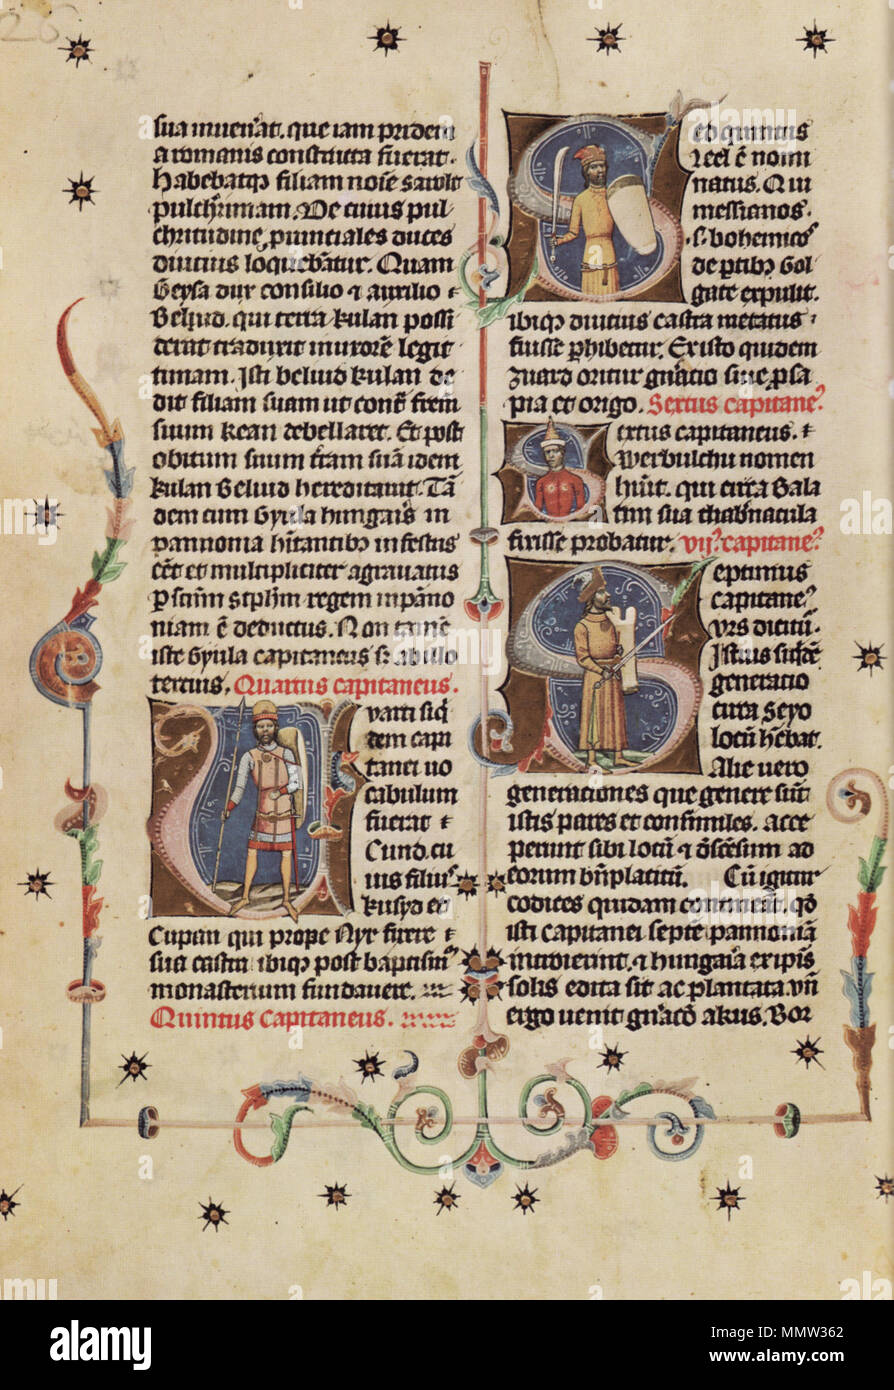 sua inuen'at. que iam pridem
a romanis constructa fuerat.
Habebatqꝫ filiam noīe sarolt
pulcħrimam. De cuius pul
chritudine ꝓuinciales duces
diucius loquebātur. Quam
Geysa dux consilio ⁊ auxilio ⁊
Beliud. qui terrā kulan possi
derat traduxit in uxorē legit
timam. Isti beliud kulan de
dit filiam suam ut cont͛ frem
suum kean debellaret. Et post
obitum suum frām suā idem
kulan Beliud hereditauit. Tā
dem cum Gyula hungaris in
pannonia hītantibꝫ infestus
eēt et multipliciter agrauatus
ꝑ scūm stephm regem in pāno
niam ē deductus. Non tamē
iste Gyula capitaneus sꝫ ab illo
tercius. Quartus capitaneus.
Quarti siqͥ
dem capi
tanei uo
cabulum
fuerat ⁊
Cund. cu
ius filius
kusyd et
Cupan qui prope Nyr fixere ⁊
sua castra ibiqꝫ post baptismū
monasterium fundauere.
Quintus capitaneus.
et quintus
Leel ē nomi
natus. Qui
messianos.
.s. bohemicos
de ꝑtibꝫ Gol
gate expulit.
ibiqꝫ diucius castra metatus ⁊
fuisse ꝑhibetur. Ex isto quidem
zuard oritur gn̄acio siue ꝓsa
pia et origo. Sextus capitaneꝰ
Sextus capitaneus. ⁊
werbulchu nomen
hūit. qui circa Bala
tim sua thabnacula
fixisse probatur. vijꝰ. capitaneꝰ
Septimus
capitaneꝰ
vrs dicitur.
Istius siqdē
generacio
circa Seyo
locū hēbat.
Alie uero
generaciones que genere sūt
istis pares et consimiles. acce
perunt sibi locū ⁊ dēscēsum ad
eorum bn̄placitū. Cū igitur
codices quidam contineāt. qꝺ
isti capitanei septe pannoniā
introierint. ⁊ hungaria ex ipis
solis edita sit ac plantata. vn̄
ergo uenit gn̄acō akus. Bor
alamy stock photo
alamy
Image ID: MMW362
www.alamy.com